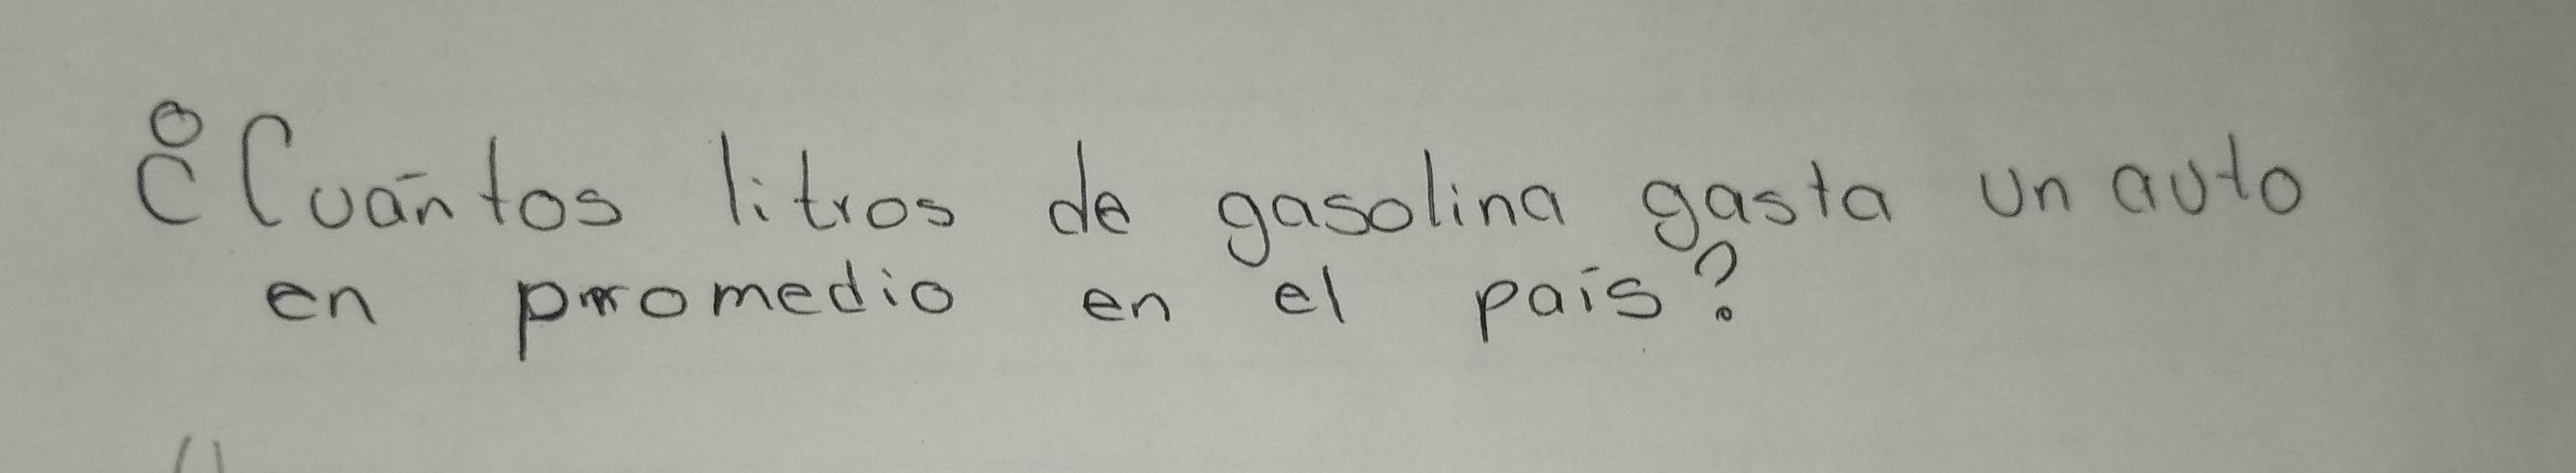 ¿Cuántos litros de gasolina gasta un auto
en promedio en el país?